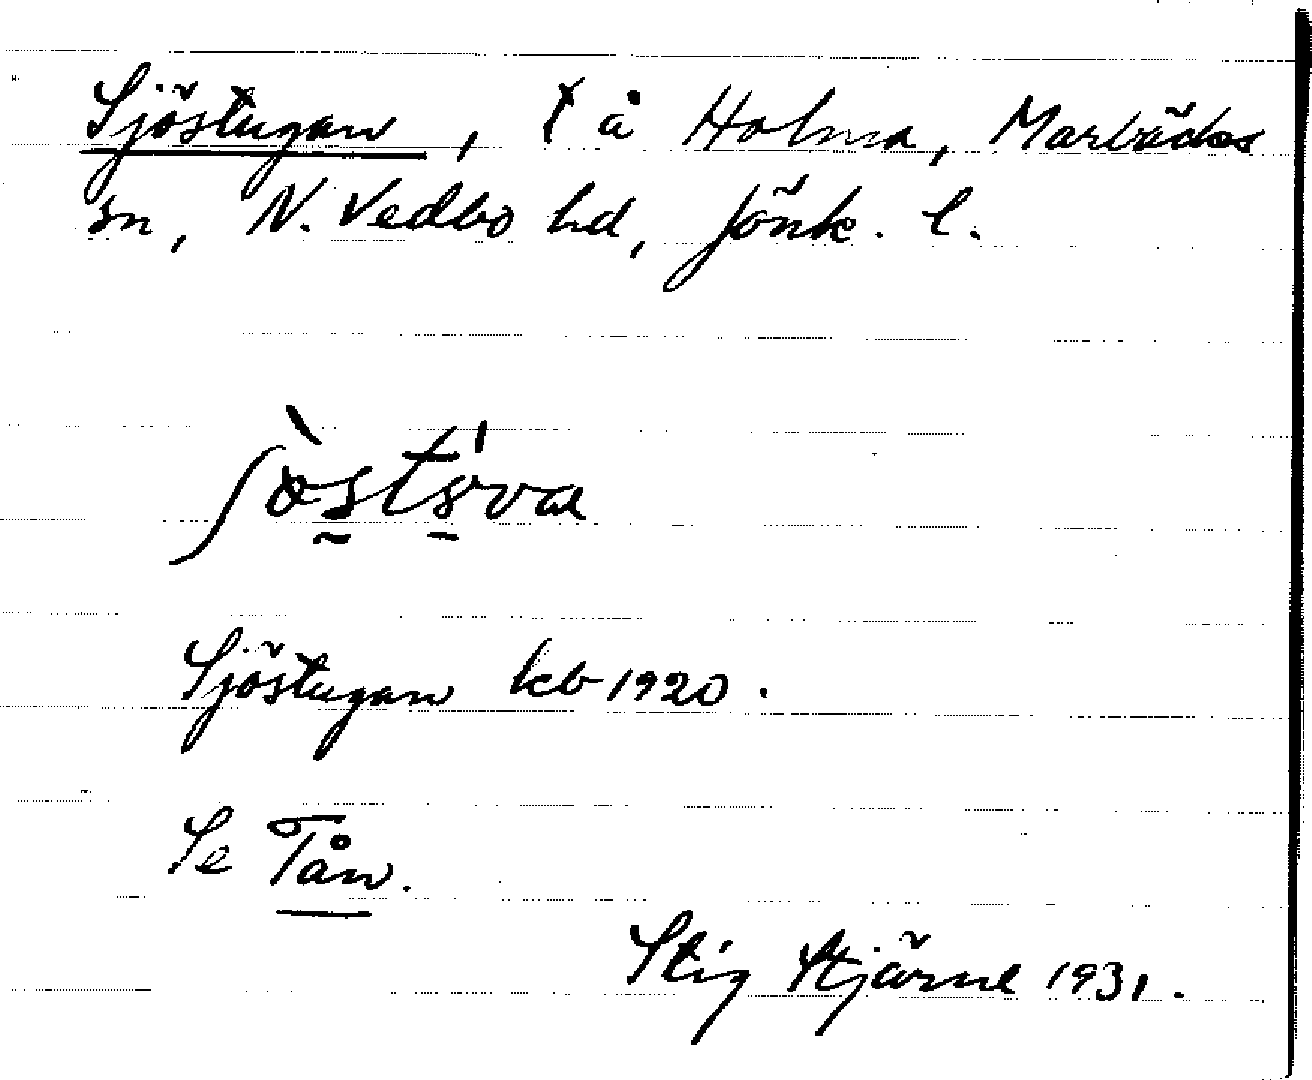 Sjöstugan, x å Holma, Marbäcks
sn, N. Vedbo hd, Jönk. l.
Sjöstugan kb 1920.
Se Tån.
Stig Stjärne 1931.